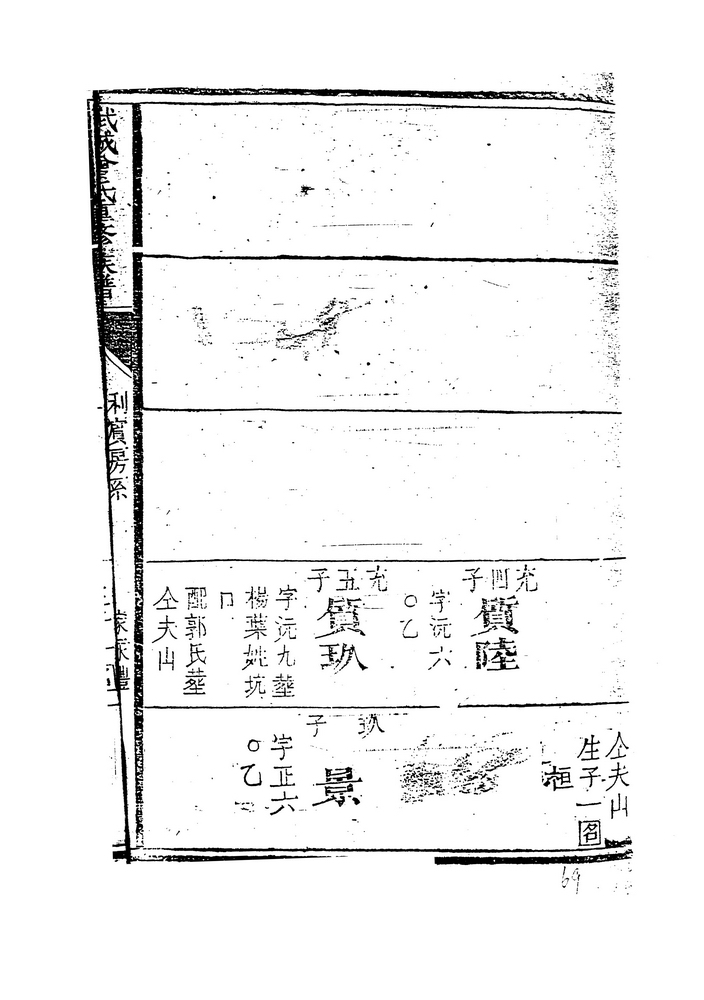 武城曾氏重修族譜
利賓房系
充四子
質陸
字沅六
○乙
充五子
質玖
字沅九塟
楊葉姚坑
口
配郭氏塟
仝夫山
仝夫山
生子一名
桓
玖子
景
字正六
○乙
69